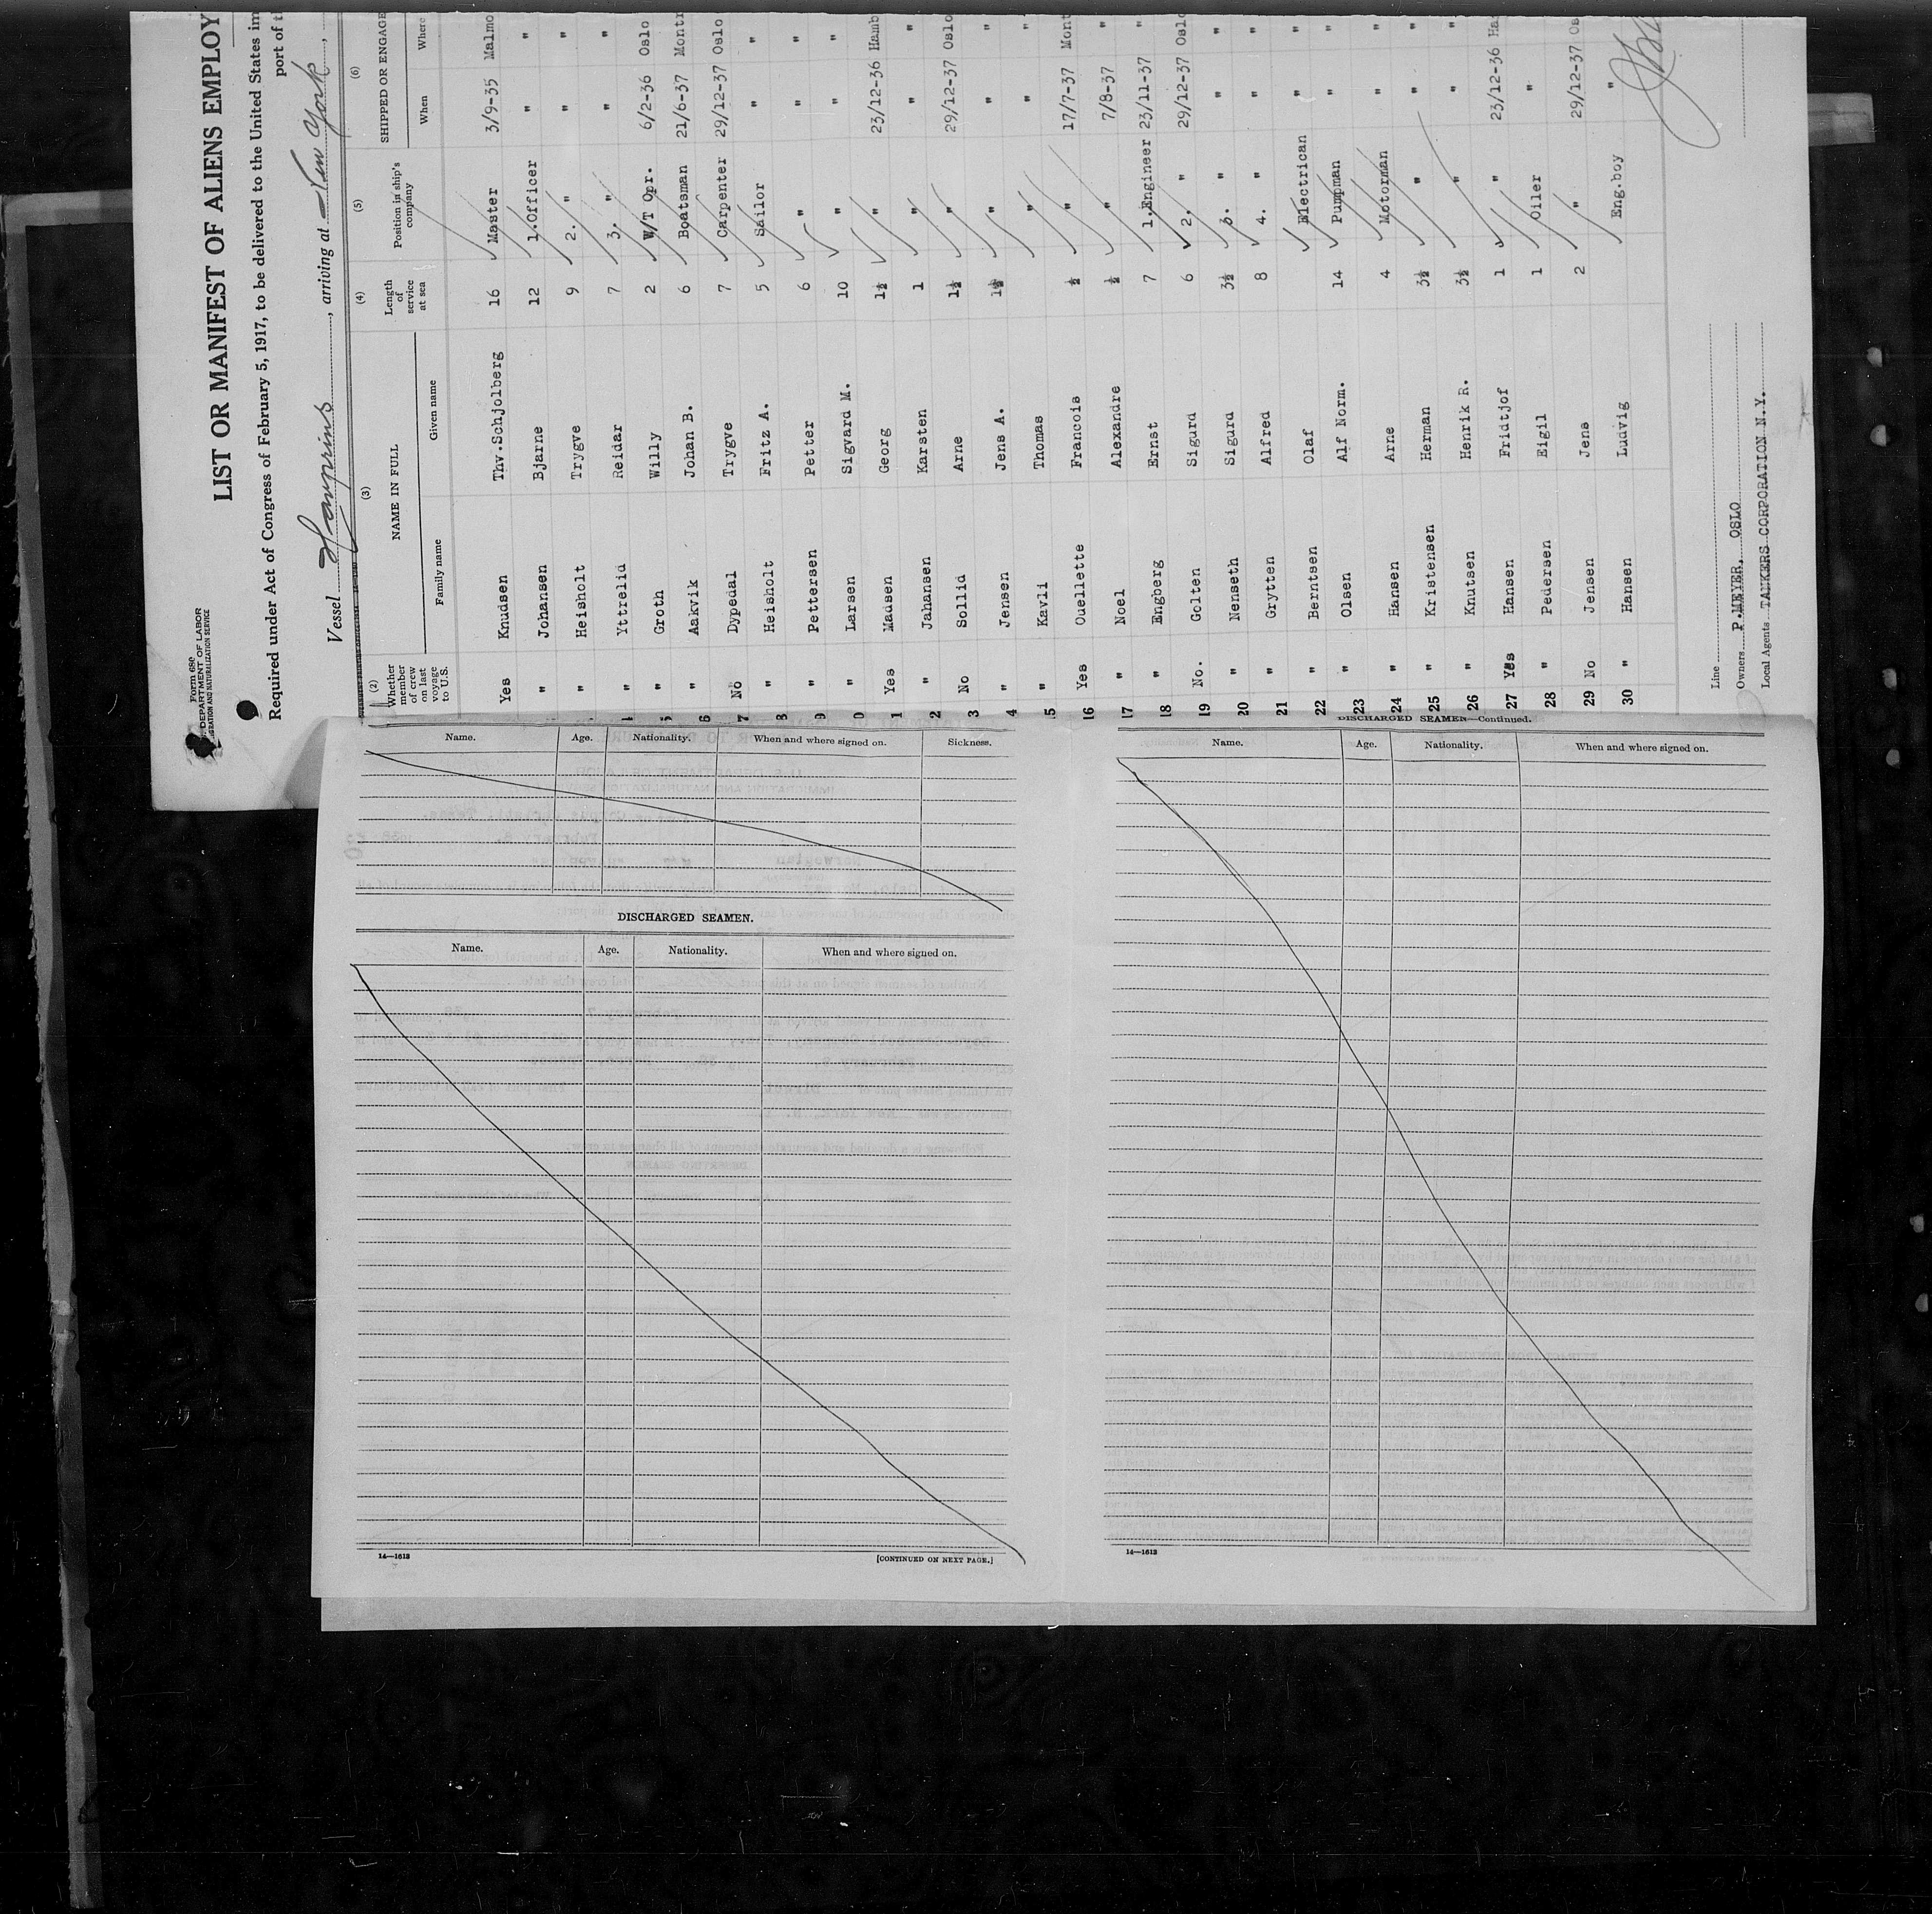 Form 680
DEPARTMENT OF LABOR
IMMIGRATION AND NATURALIZATION SERVICE
LIST OR MANIFEST OF ALIENS EMPLOY
Required under Act of Congress of February 5, 1917, to be delivered to the United States im
port of
Vessel Havprins, arriving at New York,
(2) (3) (4) (5) (6)
Whether member of crew on last voyage to U.S. NAME IN FULL Length of service at sea Position in ship's company SHIPPED OR ENGAGE
Family name Given name When Where
Yes Knudsen Thv.Schjolberg 16 Master 3/9-35 Malmo
" Johansen Bjarne 12 1.Officer " "
" Heisholt Trygve 9 2. " " "
" Yttrelid Reidar 7 3. " " "
" Groth Willy 2 W/T Opr. 6/2-36 Oslo
6 " Aakvik Johan B. 6 Boatsman 21/6-37 Montr
7 No Dypedal Trygve 7 Carpenter 29/12-37 Oslo
8 " Heisholt Fritz A. 5 Sailor " "
9 " Pettersen Petter 6 " " "
0 " Larsen Sigvard M. 10 " " "
1 Yes Madsen Georg 1½ " 23/12-36 Hamb
2 " Jahansen Karsten 1 " " "
3 No Sollid Arne 1½ " 29/12-37 Oslo
4 " Jensen Jens A. 1½ " " "
15 " Kavli Thomas " " "
16 Yes Ouellette Francois ½ " 17/7-37 Mont
17 " Noel Alexandre ½ " 7/8-37 "
18 " Engberg Ernst 7 1.Engineer 23/11-37 "
19 No. Golten Sigurd 6 2. " 29/12-37 Oslo
20 " Nenseth Sigurd 3½ 3. " " "
21 " Grytten Alfred 8 4. " " "
22 " Berntsen Olaf Electrican " "
23 " Olsen Alf Norm. 14 Pumpman " "
24 " Hansen Arne 4 Motorman " "
25 " Kristensen Herman 3½ " " "
26 " Knutsen Henrik R. 3½ " " "
27 Yes Hansen Fridtjof 1 " 23/12-36 Ha
28 " Pedersen Eigil 1 Oiler "
29 No Jensen Jens 2 " 29/12-37 Os
30 " Hansen Ludvig Eng.boy "
Line
Owners P.MEYER, OSLO
Local Agents TANKERS CORPORATION N.Y.
Name. Age. Nationality. When and where signed on. Sickness.
DISCHARGED SEAMEN.
Name. Age. Nationality. When and where signed on.
14—1613
[CONTINUED ON NEXT PAGE.]
DISCHARGED SEAMEN—Continued.
Name. Age. Nationality. When and where signed on.
14—1613